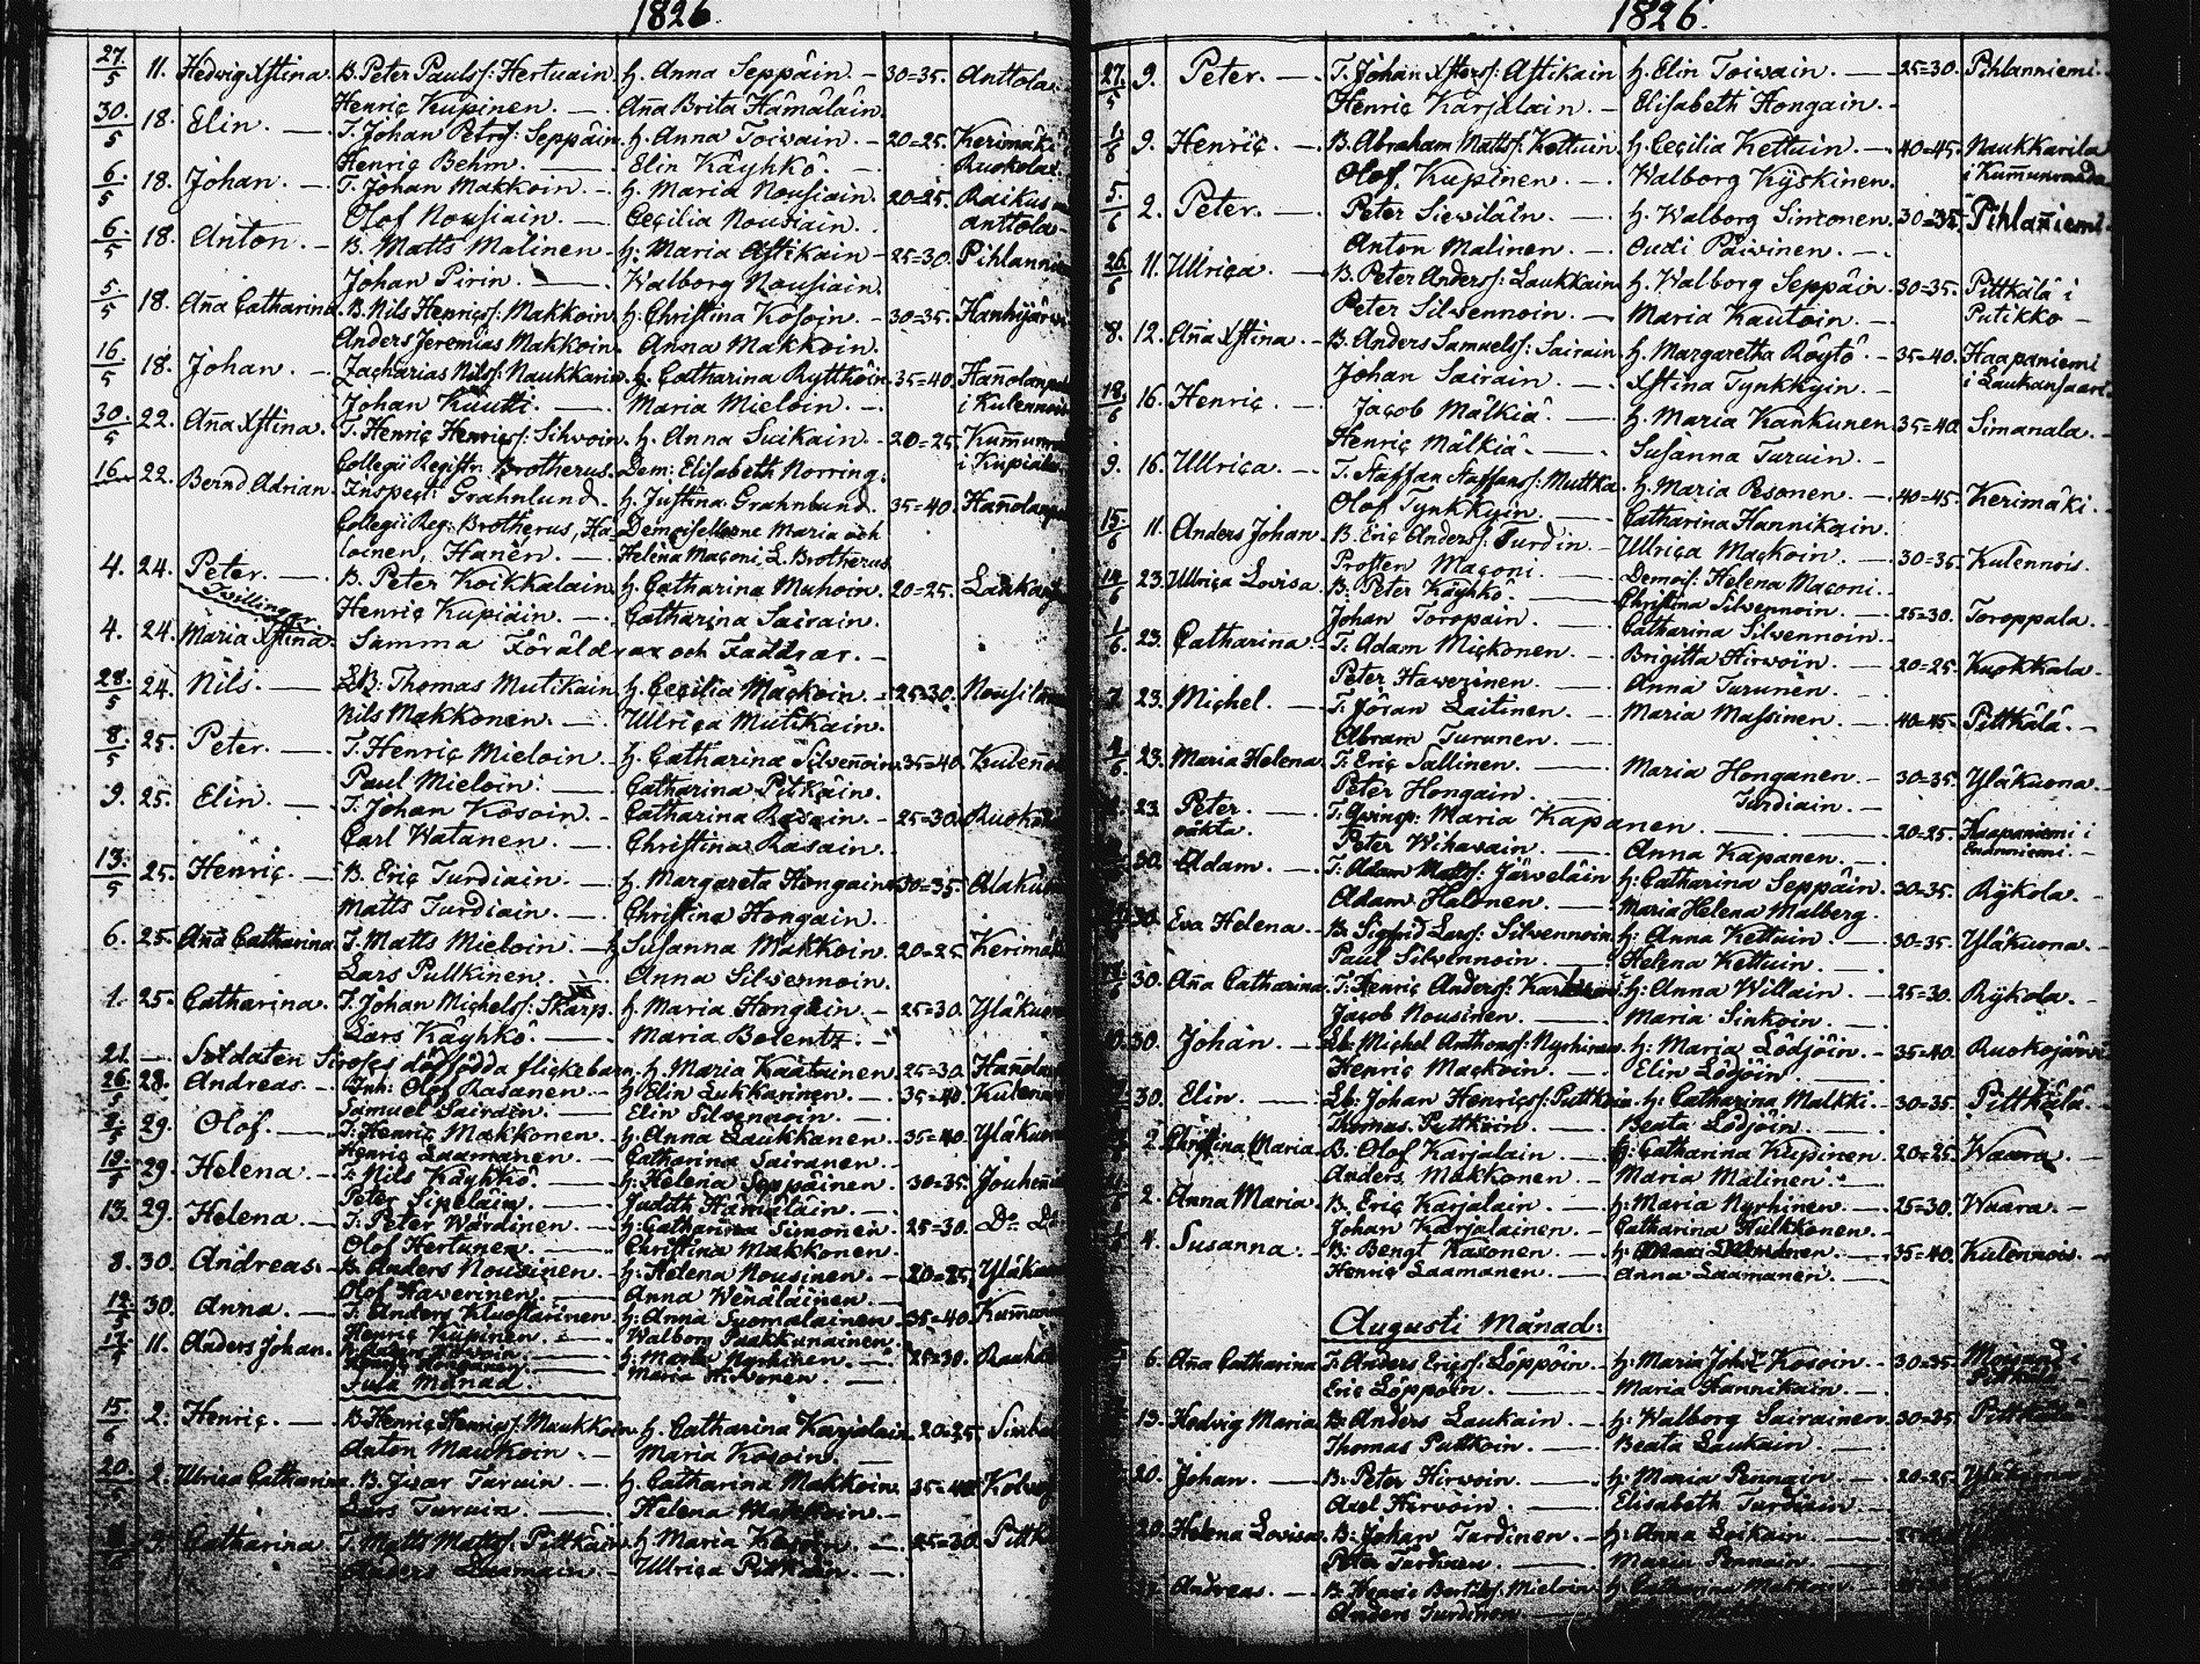 1826
27/5 11. Hedvig Xstina. B. Peter Paulss: Hertuain H. Anna Seppäin. 30=35. Anttola
Henriç Kupinen. Aña Brita Hämäläin.
30/5 18. Elin. T. Johan Petrss: Seppäin H. Anna Toivain. 20=25. Kerimäki
Henriç Behm. Elin Käyhkö. Ruokola
6/5 18. Johan. T. Johan Makkoin. H. Maria Nousiain. 20=25. Raikus
Olof Nousiain. Ceçilia Nousiain. anttola
6/5 18. Anton. B. Matts Malinen H: Maria Astikain 25=30. Pihlannie
Johan Pirin. Walborg Nousiain.
5/5 18. Aña Catharina. B. Nils Henriçss: Makkoin. H: Christina Kosoin. 30=35. Hanhijärvi
Anders Jeremias Makkoin. Anna Makkoin.
16/5 18. Johan. Zaçharias Nilss: Naukkarin. H. Catharina Ryttköin. 35=40. Hañolan
Johan Kuutti. Maria Mieloin. i Kulennois
30/5 22. Aña Xstina. T. Henriç Henriçss: Sihvoin. H. Anna Suikain. 20=25. Kum̃un
Collegii Registr: Brotherus. Dem: Elisabeth Norring. i Kupiala
16 22. Bernd Adrian. Inspect: Grahnlund. H. Justina Grahnlund. 35=40. Hañolan
Collegii Reg: Brotherus, Ha- Demoisellerne Maria och
loinen, Hanén. Helena Maçoni, L. Brotherus
4. 24. Peter. B. Peter Koikkalain. H. Catharina Muhoin. 20=25. Laukan
Twillingar Henriç Kupiäin. Catharina Sairain.
4. 24. Maria Xstina. Samma Föräldrar och Faddrar.
28/5 24. Nils. LB: Thomas Mutikain. H. Ceçilia Maçkoin. 25=30. Nousila
Nils Makkonen. Ullriça Mutikain.
8/5 25. Peter. T. Henriç Mieloin H. Catharina Silveñoin. 35=40. Kuleño
Paul Mieloin. Catharina Pitkäin.
9. 25. Elin. T. Johan Kosoin. Catharina Räsäin. 25=30. Ruoko
Carl Watanen. Christina Rasain.
13/5 25. Henriç. B. Eriç Turdiain. H. Margareta Hongain. 30=35. Alaku
Matts Turdiain. Christina Hongain.
6. 25. Aña Catharina T. Matts Mieloin. H Susanna Makkoin. 20=25. Kerimä
Lars Pullkinen. Anna Silvennoin.
1. 25. Catharina. T. Johan Michelss: Skarp. H. Maria Hongain. 25=30. Yläkuo
Lars Käyhkö. Maria Bolentz.
21. Soldaten Sirofes dödfödda fliçkebarn. H. Maria Kaatainen. 25=30. Hañola
26/5 28. Andreas. Inh: Olof Rasanen. H Elin Lukkarinen. 35=40. Kulen
Samuel Sairain. Elin Silvennoin.
2/5 29. Olof. T: Henriç Makkonen. H: Anna Laukkanen. 35=40. Yläkuo
Henriç Laamanen. Catharina Sairanen.
12/5 29. Helena. T: Nils Käyhkö. H: Helena Seppäinen. 30=35. Jouheñ
Peter Sipeläin. Judith Hämäläin.
13. 29. Helena. T: Peter Wärdinen. H: Catharina Simonen. 25=30. Do Do
Olof Hertunen. Christina Makkonen.
8. 30. Andreas. B. Anders Nousinen. H: Helena Nousinen. 20=25. Yläku
Olof Haverinen. Anna Wenäläinen.
12/5 30. Anna. T. Anders Kluostarinen. H: Anna Suomalainen. 35=40. Kum̃un
Henriç Kupinen. Walborg Paakkunainen.
17 11. Anders Johan. H: Maria Nyrhinen. 25=30. Rauha
Maria Hirvonen.
Julii Månad.
15/6 2. Henriç. B. Henriç Henriçss: Maukkoin H. Catharina Karjalain. 20=25. Simba
Anton Maukoin Maria Kosoin.
20 2. Ulriça Catharina. B. Iwar Taruin. H. Catharina Makkoin. 35=40. Kolvo
Lars Turuin. Helena Makkoin.
9. Catharina. T. Matts Mattss: Pittkäin. H. Maria Kosoin. 25=30. Pittk
Anders Laamain. Ullriça Pitkäin.
1826.
27/5 9. Peter. T. Johan Xsterss: Astikain H. Elin Toivain. 25=30. Pihlanniemi.
Henriç Karjalain. Elisabeth Hongain.
1/6 9. Henriç. B. Abraham Mattss: Kettuin. H. Ceçilia Kettuin. 40=45. Naukkarila
Olof Kupinen. Walborg Kyskinen. i Kum̃unranda
5/6 2. Peter. Peter Sieviläin. H. Walborg Simonen. 30=35. Pihlañiemi.
Anton Malinen. Oudi Päivinen.
26/6 11. Ullriça. B. Peter Anderss: Laukkain. H. Walborg Seppäin. 30=35. Pittkälä i
Peter Silvennoin. Maria Kautoin. Putikko
8. 12. Aña Xstina. B. Anders Samuelss: Sairain. H. Margaretha Röytö. 35=40. Haapaniemi
Johan Sairain. Xstina Tynkkyin. i Laukansaari.
18/6 16. Henriç. Jaçob Mälkiä. H. Maria Kankunen. 35=40. Simanala.
Henriç Mälkiä. Susanna Turuin.
9. 16. Ullriça. T. Staffan Staffanss: Muttka. H. Maria Pesonen. 40=45. Kerimäki.
Olof Tynkkyin. Catharina Hannikain.
15/6 11. Anders Johan. B. Eriç Anderss: Turdin. Ullriça Maçkoin. 30=35. Kulennois.
Prosten Maçoni. Demois: Helena Maçoni.
14/6 23. Ullriça Lovisa. B: Peter Käyhkö. Christina Silvennoin. 25=30. Toroppala.
Johan Toropain. Catharina Silvennoin.
1/6 23. Catharina. T: Adam Miçkonen. Brigitta Hirvoin. 20=25. Kuokkala.
Peter Haverinen. Anna Turunen.
7 23. Michel. T: Jöran Laitinen. Maria Massinen. 40=45. Pittkälä.
Abram Turunen.
4/6 23. Maria Helena. T: Eriç Sallinen. Maria Honganen. 30=35. Yläkuona.
Peter Hongain. Turdiain.
23 Peter. T: Qwinsp: Maria Kapanen. 20=25. Haapaniemi i
oäkta. Peter Wihavain. Anna Kapanen. Enanniemi.
30. Adam. T: Adam Mattss: Järveläin H: Catharina Seppäin. 30=35. Rykola.
Adam Halonen. Maria Helena Malberg.
30. Eva Helena. B: Sigfrid Larss: Silvennoin. H: Anna Kettuin. 30=35. Yläkuona.
Paul Silvennoin. Helena Kettuin.
30. Aña Catharina. T: Henriç Anderss: H: Anna Willain. 25=30. Rykola.
Jacob Nousinen. Maria Sinkoin.
30. Johan. Lb: Michel Anthonss: Nyrhinen. H: Maria Lödjöin. 35=40. Ruokojärvi
Henriç Maçkoin. Elin Lödjöin.
30. Elin. Lb: Johan Henriçss: Puttkoin. H: Catharina Malkki. 30=35. Pittkälä.
Thomas Puttkoin. Beata Lödjöin.
2. Christina Maria. B: Olof Karjalain. H: Catharina Kupinen. 20=25. Waara.
Anders Makkonen. Maria Malinen.
2. Anna Maria. B. Eriç Karjalain. H: Maria Nyrhinen. 25=30. Waara.
Johan Karjalainen. Catharina Hulkkonen.
4. Susanna. B: Bengt Kasonen. H: 35=40. Kulennois.
Henriç Laamanen. Anna Laamanen.
Augusti Månad:
6. Aña Catharina T: Anders Eriçss: Löppöin. H: Maria Kosoin. 30=35. i
Eriç Löppöin. Maria Hannikain.
13. Hedvig Maria B: Anders Laukain. H: Walborg Sairainen. 30=35. Pittkälä
Thomas Puttkoin. Beata Laukain.
20. Johan. B: Peter Hirvoin. H: Maria Pennain. 20=25. Yläkuona
Axel Hirvoin. Elisabeth Turdiain.
20. Helena Lovisa. B: Johan Turdinen. H: Anna Loikain.
Peter Turdinen. Maria Pennain.
Andreas. B: Henriç Mieloin. H: Catharina Makkoin.
Anders Turdinen